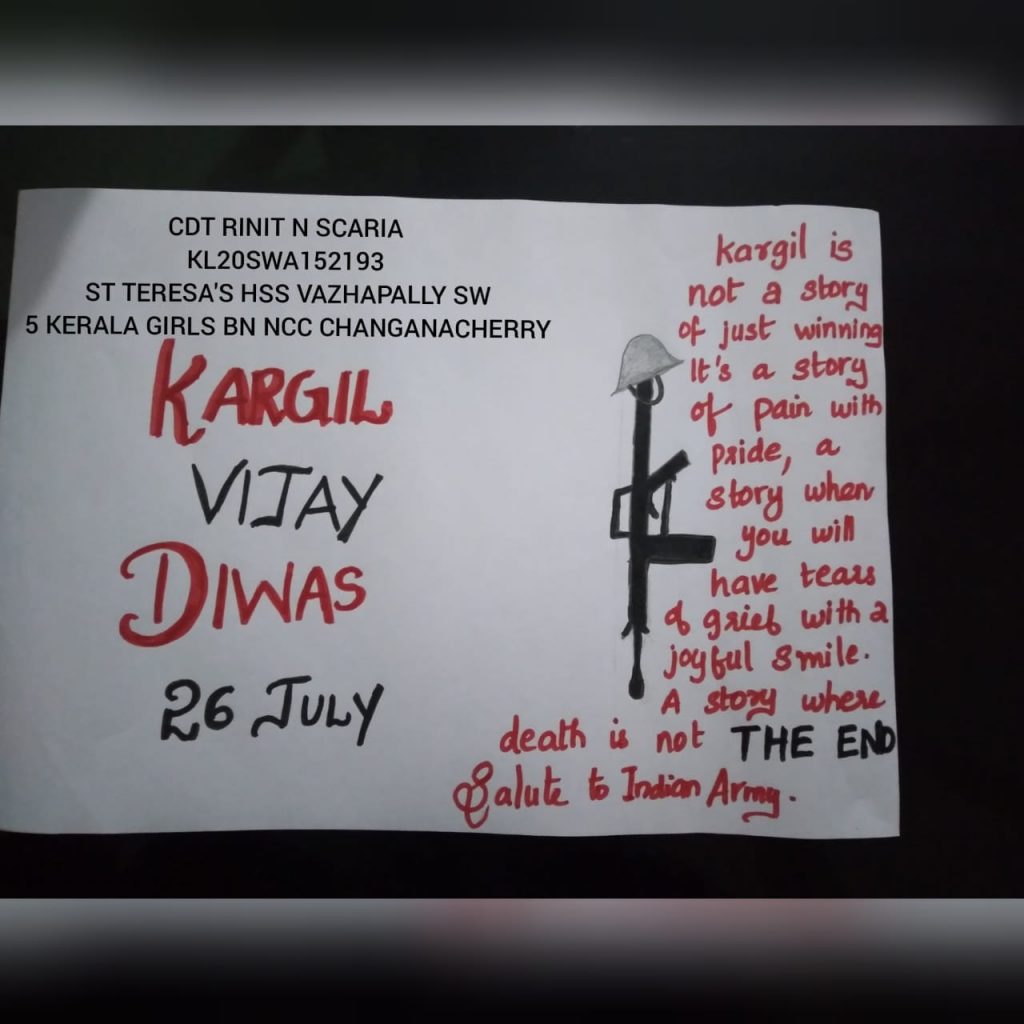 CDT RINIT N SCARIA
KL20SWA152193
ST TERESA'S HSS VAZHAPALLY SW
5 KERALA GIRLS BN NCC CHANGANACHERRY
KARGIL
VIJAY
DIWAS
26 JULY
kargil is
not a story
of just winning
It's a story
of pain with
pride, a
story when
you will
have tears
of grief with a
joyful smile.
A story where
death is not THE END
Salute to Indian Army.